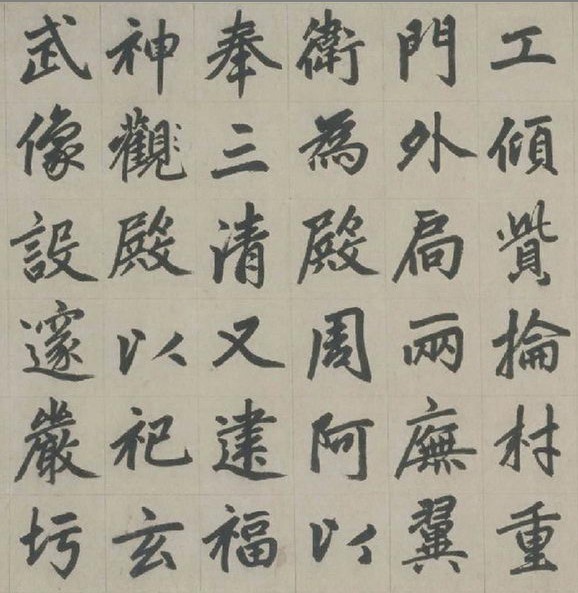 工傾貲掄材重
門外扃兩廡翼
衛為殿周阿以
奉三清又建福
神觀殿以祀玄
武像設邃嚴圬